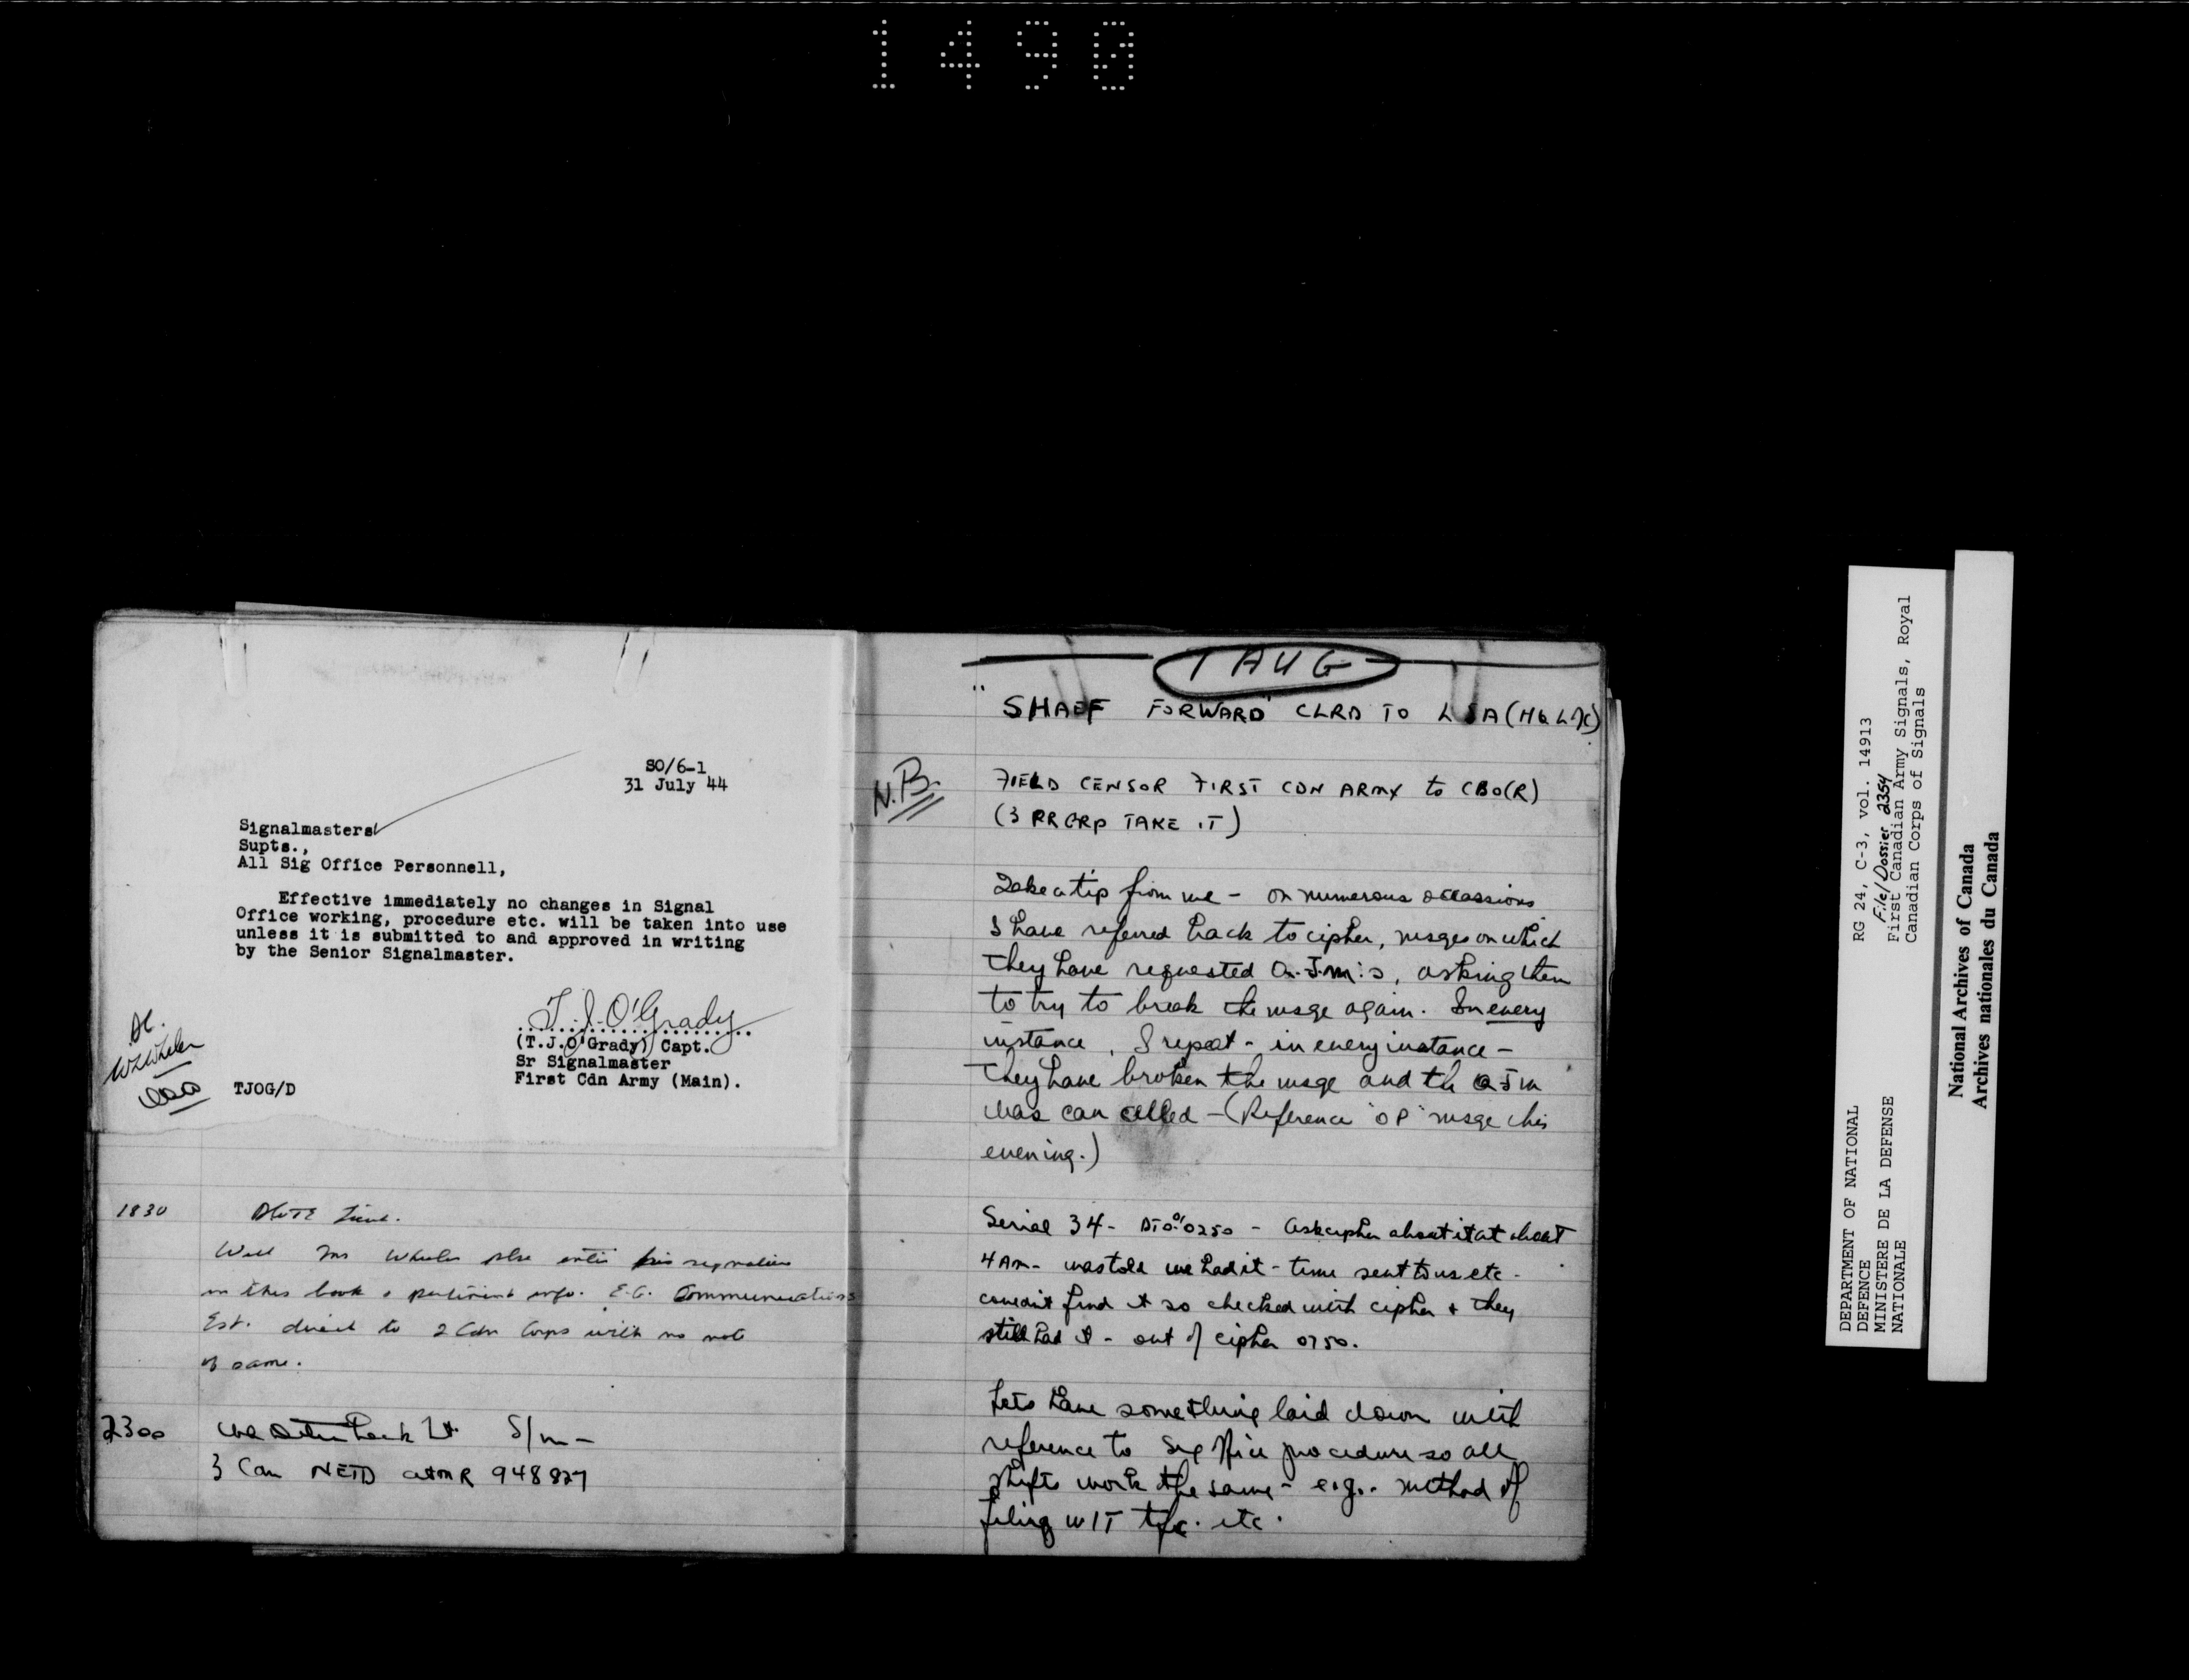 1490
SO/6-1
31 July 44
Signalmasters
Supts.,
All Sig Office Personnell,
Effective immediately no changes in Signal
Office working, procedure etc. will be taken into use
unless it is submitted to and approved in writing
by the Senior Signalmaster.
T.J. O'Grady
(T.J.O'Grady) Capt.
Sr Signalmaster
First Cdn Army (Main).
TJOG/D
1830
Will Wheeler pse enter his signature
in this book & pertinent info. E.G. Communications
Est. direct to 2 Cdn Corps with no note
of same.
2300
S/m -
3 Can NETD 948827
1 AUG
"SHAEF FORWARD" CLRD TO
N.B.
FIELD CENSOR FIRST CDN ARMY to CBO(R)
(3 RR GRP TAKE IT)
Take a tip from me - on numerous occassions
I have referred back to cipher, msges on which
they have requested Q.J.M.'s, asking them
to try to break the msge again. In every
instance, I repeat - in every instance -
they have broken the msge and the QJM
was cancelled - (Reference "OP" msge this
evening.)
Serial 34 - 0250 - Ask cipher about it at about
4 AM - was told we had it - time sent to us etc -
couldn't find it so checked with cipher + they
still had it - out of cipher 0750.
Lets have something laid down with
reference to Sig Office procedure so all
shifts work the same - e.g. - method of
filing W/T tfc. etc.
DEPARTMENT OF NATIONAL
DEFENCE
MINISTERE DE LA DEFENSE
NATIONALE
RG 24, C-3, vol. 14913
File/Dossier 2354
First Canadian Army Signals, Royal
Canadian Corps of Signals
National Archives of Canada
Archives nationales du Canada